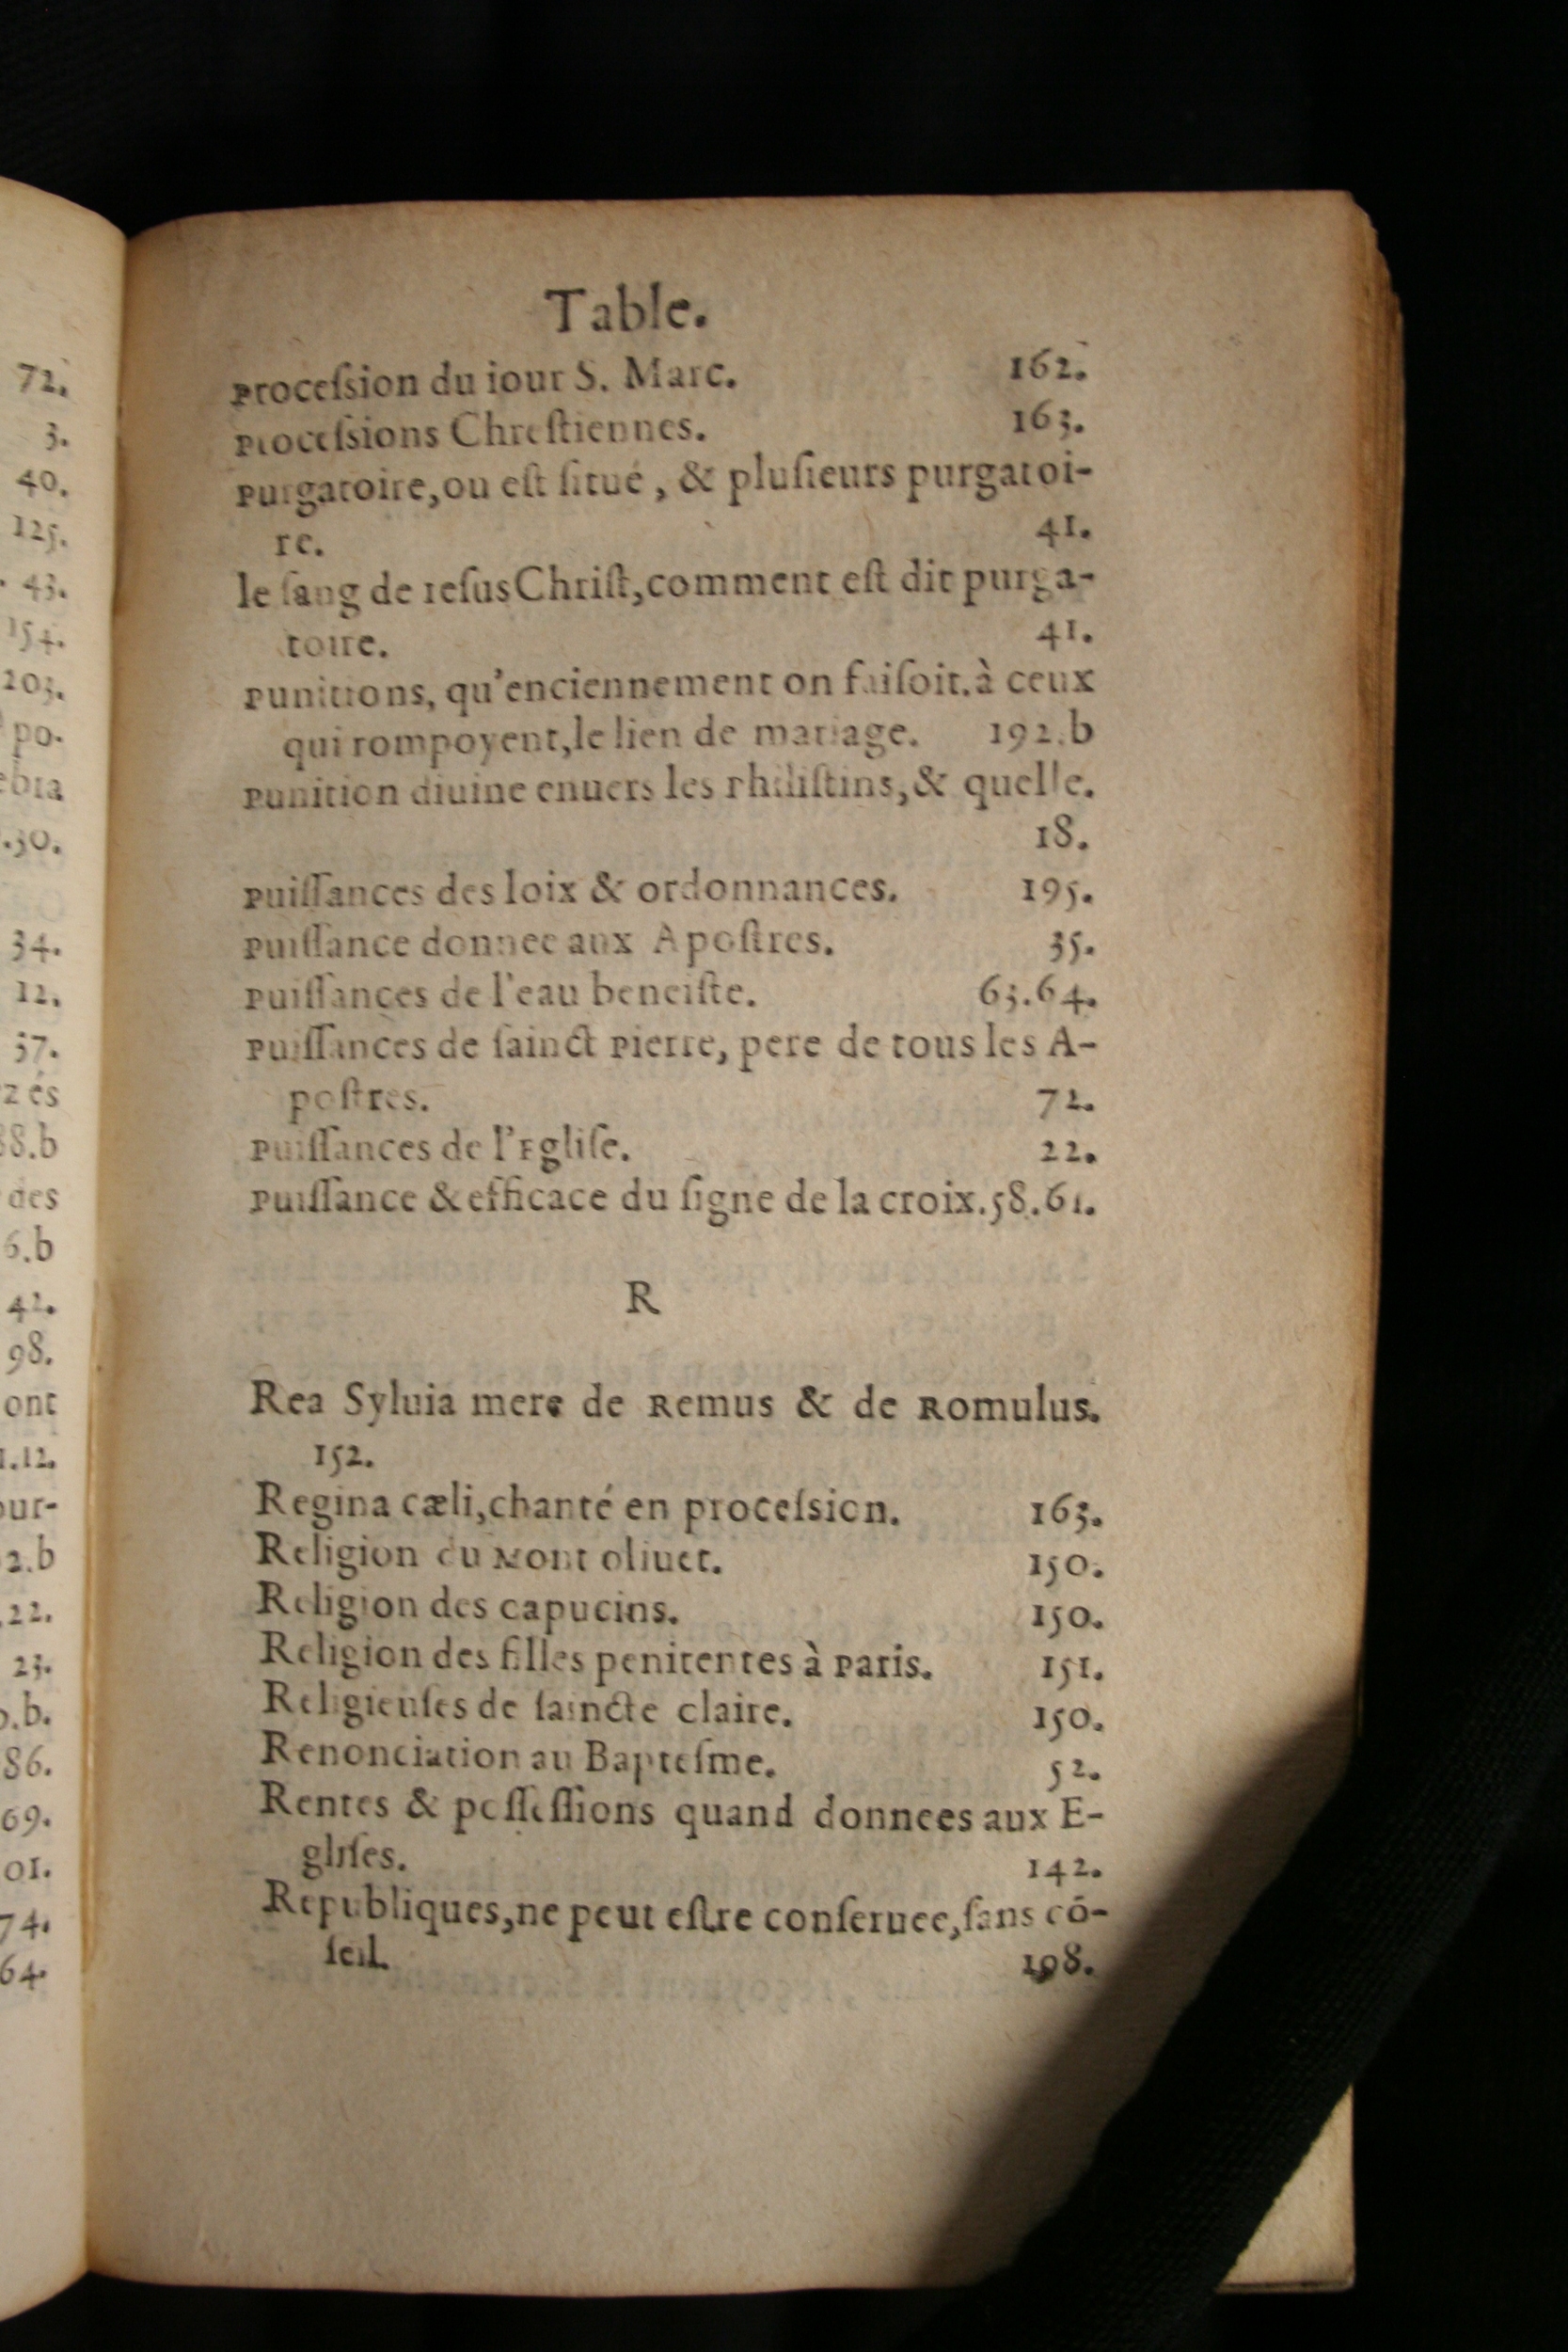 72.
3.
40.
125.
43.
154.
203.
po-
.30.
34.
12.
37.
és
88.b
des
6.b
42.
98.
ont
.12.
our-
2.b
22.
23.
.b.
86.
69.
01.
74.
64.
Table.
Proceſsion du iour S. Marc. 162.
Proceſsions Chreſtiennes. 163.
Purgatoire, ou eſt ſitué, & pluſieurs purgatoi-
re. 41.
le ſang de Ieſus Chriſt, comment eſt dit purga-
toire. 41.
Punitions, qu'enciennement on faiſoit. à ceux
qui rompoyent, le lien de mariage. 192.b
Punition diuine enuers les Philiſtins, & quelle.
18.
Puiſſances des loix & ordonnances. 195.
Puiſſance donnee aux Apoſtres. 35.
Puiſſances de l'eau beneiſte. 63.64.
Puiſſances de ſainct Pierre, pere de tous les A-
poſtres. 72.
Puiſſances de l'Egliſe. 22.
Puiſſance & efficace du ſigne de la croix. 58.61.
R
Rea Syluia mere de Remus & de Romulus.
152.
Regina cæli, chanté en proceſsion. 163.
Religion du Mont oliuet. 150.
Religion des capucins. 150.
Religion des filles penitentes à Paris. 151.
Religieuſes de ſaincte claire. 150.
Renonciation au Bapteſme. 52.
Rentes & poſſeſſions quand donnees aux E-
gliſes. 142.
Republiques, ne peut eſtre conſeruee, ſans cō-
ſeil. 198.